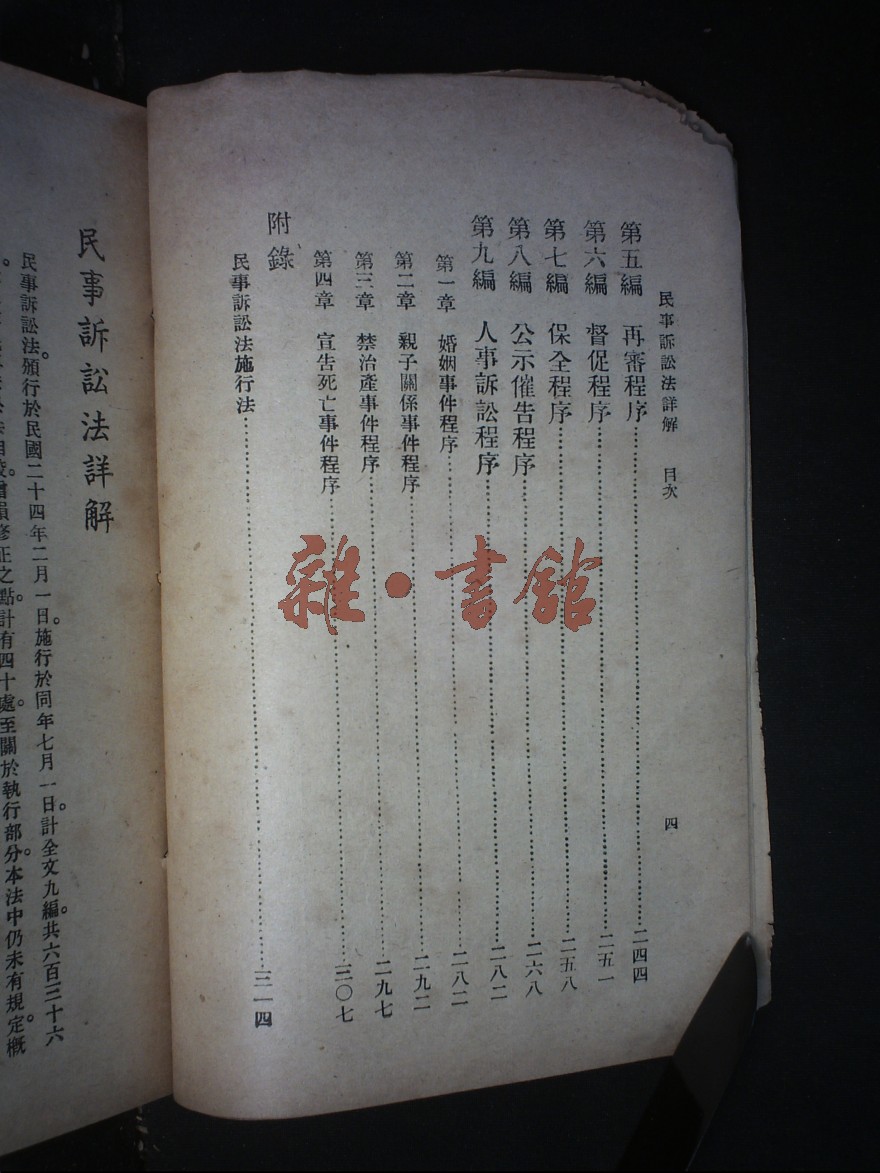 民事訴訟法詳解　目次　四
第五編　再審程序……二四四
第六編　督促程序……二五一
第七編　保全程序……二五八
第八編　公示催告程序……二六八
第九編　人事訴訟程序……二八二
第一章　婚姻事件程序……二八二
第二章　親子關係事件程序……二九二
第三章　禁治產事件程序……二九七
第四章　宣告死亡事件程序……三〇七
附錄
民事訴訟法施行法……三一四
民事訴訟法詳解
民事訴訟法頒行於民國二十四年二月一日。施行於同年七月一日。計全文九編。共六百三十六
修正之點。計有四十處。至關於執行部分。本法中仍未有規定。概
雜·書館